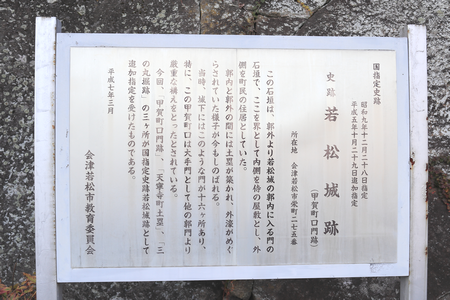 国指定史跡
昭和九年十二月二十八日指定
平成五年十月二十九日追加指定
史跡 若松城跡
(甲賀町口門跡)
所在地 会津若松市栄町二七五番
この石垣は、郭外より若松城の郭内に入る門の
石垣で、ここを界として内側を侍の屋敷とし、外
側を町民の住居としていた。
郭内と郭外の間には土塁が築かれ、外濠がめぐ
らされていた様子が今もしのばれる。
当時、城下にはこのような門が十六ヶ所あり、
特に、この甲賀口門は大手門として他の郭門より
厳重な構えをとったとされている。
今回、「甲賀町口門跡」、「天寧寺町土塁」、「三
の丸堀跡」の三ヶ所が国指定史跡若松城跡として
追加指定を受けたものである。
平成七年三月
会津若松市教育委員会